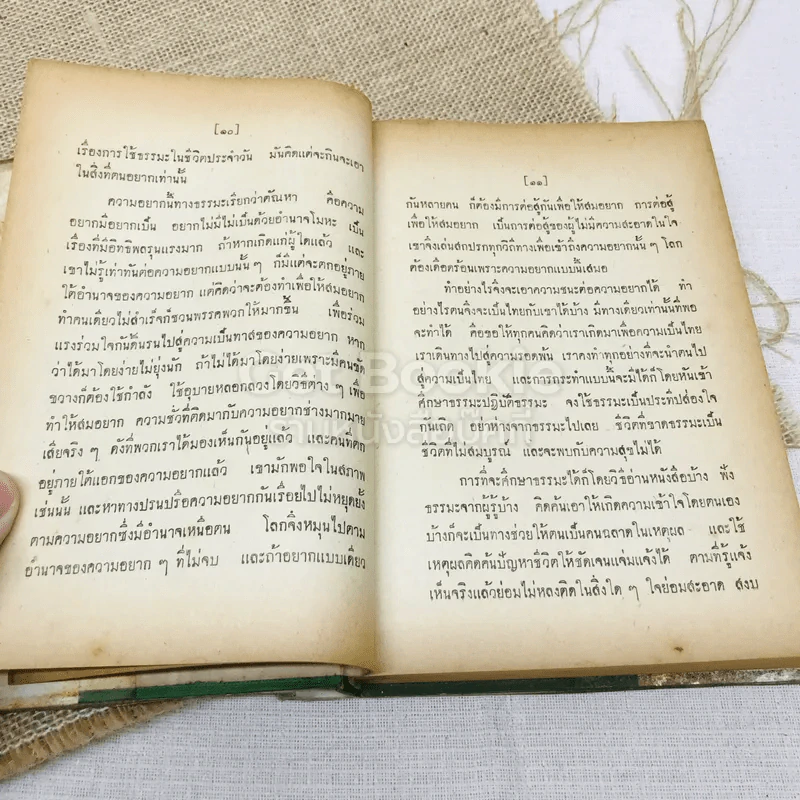 [๑๐]
เรื่องการใช้ธรรมะในชีวิตประจำวัน มันคิดแต่จะกินจะเอา
ในสิ่งที่ตนอยากเท่านั้น
ความอยากนี้ทางธรรมะเรียกว่าตัณหา คือความ
อยากมีอยากเป็น อยากไม่มีไม่เป็นด้วยอำนาจโมหะ เป็น
เรื่องที่มีอิทธิพลรุนแรงมาก ถ้าหากเกิดแก่ผู้ใดแล้ว และ
เขาไม่รู้เท่าทันต่อความอยากแบบนั้น ๆ ก็มีแต่จะตกอยู่ภาย
ใต้อำนาจของความอยาก แต่คิดว่าจะต้องทำเพื่อให้สมอยาก
ทำคนเดียวไม่สำเร็จก็ชวนพรรคพวกให้มากขึ้น เพื่อร่วม
แรงร่วมใจกันดิ้นรนไปสู่ความเป็นทาสของความอยาก หาก
ว่าได้มาโดยง่ายไม่ยุ่งนัก ถ้าไม่ได้มาโดยง่ายเพราะมีคนขัด
ขวางก็ต้องใช้กำลัง ใช้อุบายหลอกลวงโดยวิธีต่าง ๆ เพื่อ
ทำให้สมอยาก ความชั่วที่ติดมากับความอยากช่างมากมาย
เสียจริง ๆ ดังที่พวกเราได้มองเห็นกันอยู่แล้ว และคนที่ตก
อยู่ภายใต้แอกของความอยากแล้ว เขามักพอใจในสภาพ
เช่นนั้น และหาทางปรนปรือความอยากกันเรื่อยไปไม่หยุดยั้ง
ตามความอยากซึ่งมีอำนาจเหนือตน โลกจึงหมุนไปตาม
อำนาจของความอยาก ๆ ที่ไม่จบ และถ้าอยากแบบเดียว
[๑๑]
กันหลายคน ก็ต้องมีการต่อสู้กันเพื่อให้สมอยาก การต่อสู้
เพื่อให้สมอยาก เป็นการต่อสู้ของผู้ไม่มีความสะอาดในใจ
เขาจึงเล่นสกปรกทุกวิถีทางเพื่อเข้าถึงความอยากนั้น ๆ โลก
ต้องเดือดร้อนเพราะความอยากแบบนี้เสมอ
ทำอย่างไรจึงจะเอาความชนะต่อความอยากได้ ทำ
อย่างไรตนจึงจะเป็นไทยกับเขาได้บ้าง มีทางเดียวเท่านั้นที่พอ
จะทำได้ คือขอให้ทุกคนคิดว่าเราเกิดมาเพื่อความเป็นไทย
เราเดินทางไปสู่ความรอดพ้น เราคงทำทุกอย่างที่จะนำตนไป
สู่ความเป็นไทย และการกระทำแบบนี้จะมีได้ก็โดยหันเข้า
ศึกษาธรรมะปฏิบัติธรรมะ จงใช้ธรรมะเป็นประทีปส่องใจ
กันเถิด อย่าห่างจากธรรมะไปเลย ชีวิตที่ขาดธรรมะเป็น
ชีวิตที่ไม่สมบูรณ์ และจะพบกับความสุขไม่ได้
การที่จะศึกษาธรรมะได้ก็โดยวิธีอ่านหนังสือบ้าง ฟัง
ธรรมะจากผู้รู้บ้าง คิดค้นเอาให้เกิดความเข้าใจโดยตนเอง
บ้างก็จะเป็นทางช่วยให้ตนเป็นคนฉลาดในเหตุผล และใช้
เหตุผลคิดค้นปัญหาชีวิตให้ชัดเจนแจ่มแจ้งได้ ตามที่รู้แจ้ง
เห็นจริงแล้วย่อมไม่หลงติดในสิ่งใด ๆ ใจย่อมสะอาด สงบ